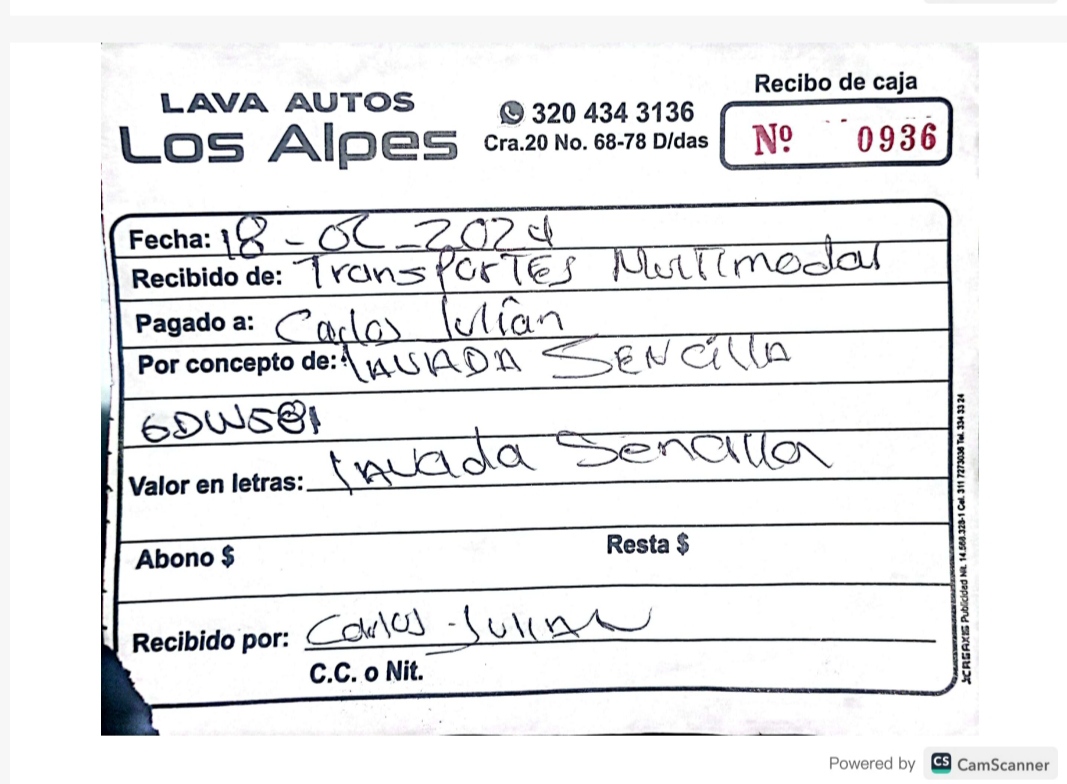 LAVA AUTOS
Los Alpes
320 434 3136
Cra.20 No. 68-78 D/das
Recibo de caja
Nº 0936
Fecha: 18-02-2024
Recibido de: Transportes Multimodal
Pagado a: Carlos Julián
Por concepto de: LAVADA SENCILLA
GDW581
Valor en letras: lavada Sencilla
Abono $
Resta $
Recibido por: Carlos Julian
C.C. o Nit.
Powered by CS CamScanner